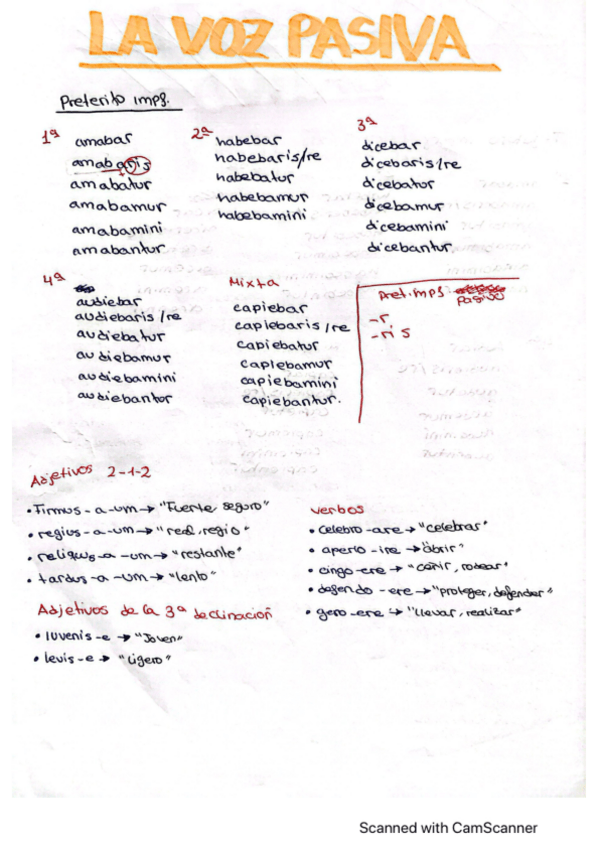 LA VOZ PASIVA
Preterito impf.
1ª
amabar
amabaris
amabatur
amabamur
amabamini
amabantur
2ª
habebar
habebaris/re
habebatur
habebamur
habebamini
3ª
dicebar
dicebaris/re
dicebatur
dicebamur
dicebamini
dicebantur
4ª
audiebar
audiebaris/re
audiebatur
audiebamur
audiebamini
audiebantur
Mixta
capiebar
capiebaris/re
capiebatur
capiebamur
capiebamini
capiebantur.
Pret.impf pasivo
-r
-ris
Adjetivos 2-1-2
• Firmus-a-um → "Fuerte, seguro"
• regius-a-um → "real, regio"
• reliquus-a-um → "restante"
• tardus-a-um → "lento"
Adjetivos de la 3ª declinación
• Iuvenis-e → "Joven"
• levis-e → "Ligero"
verbos
• celebro-are → "celebrar"
• aperio-ire → "abrir"
• cingo-ere → "ceñir, rodear"
• defendo-ere → "proteger, defender"
• gero-ere → "llevar, realizar"
Scanned with CamScanner